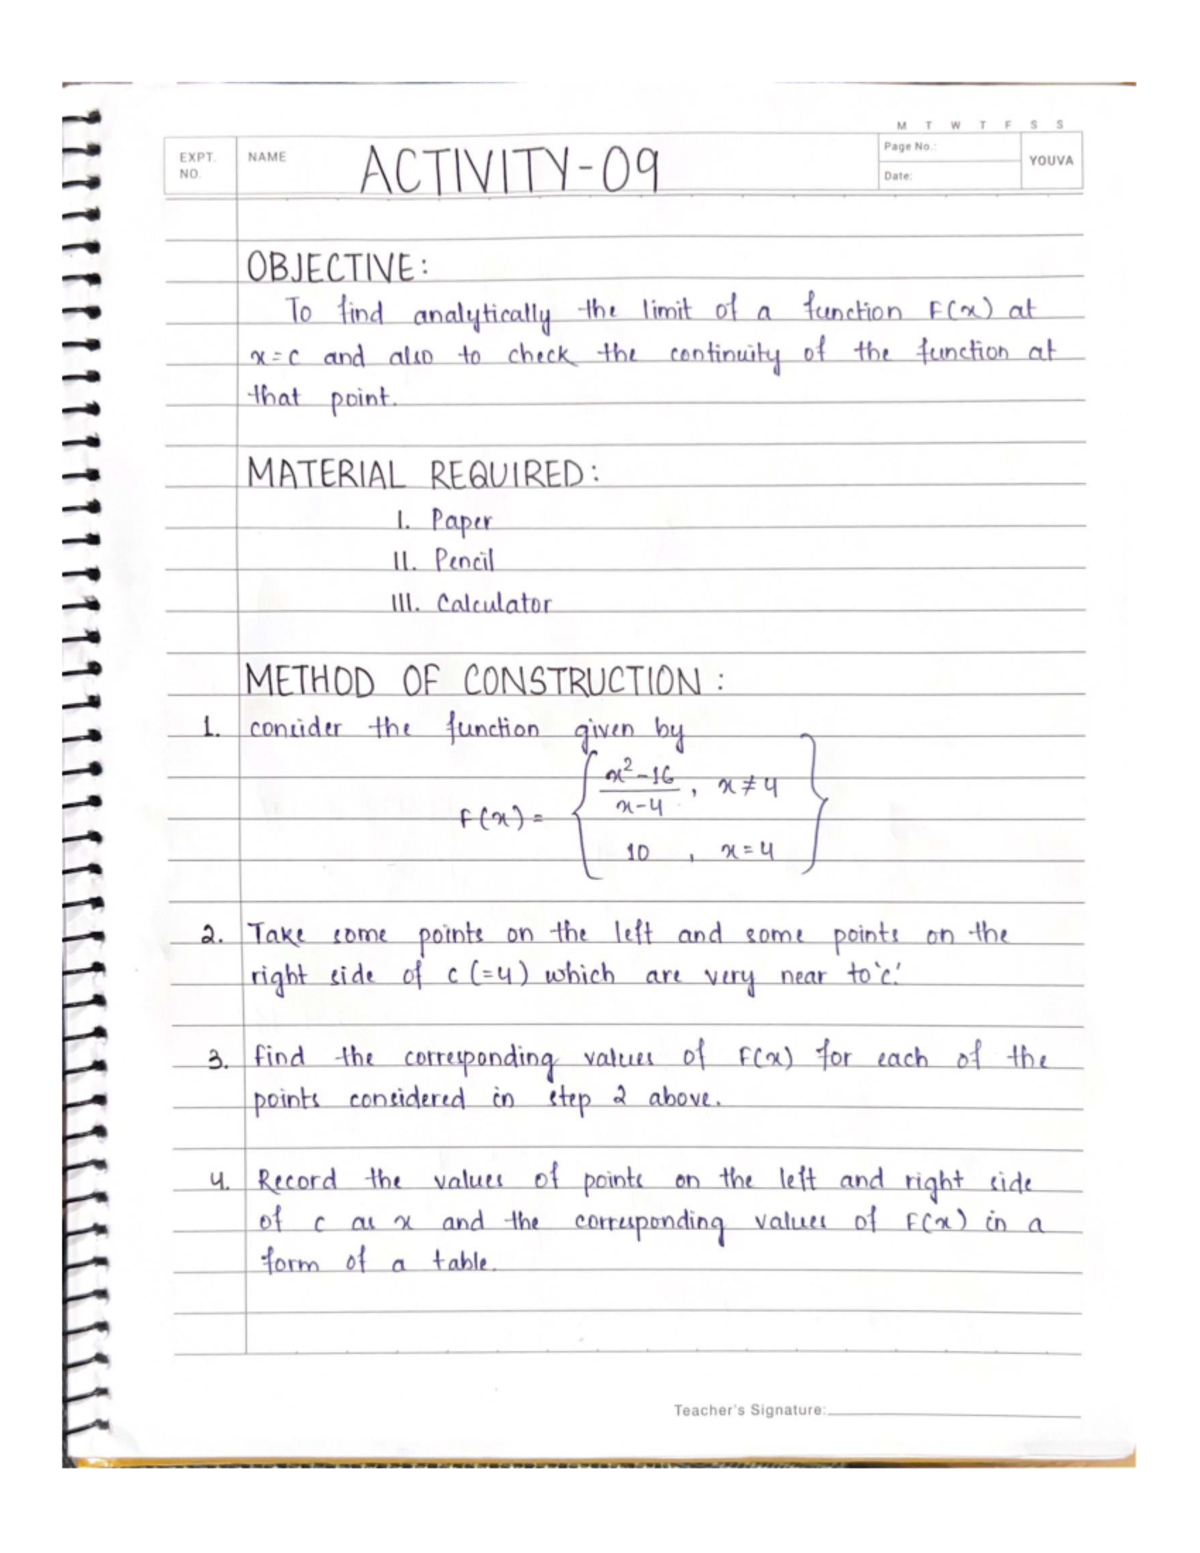 M T W T F S S
EXPT. NO.
NAME
ACTIVITY-09
Page No.:
Date:
YOUVA
OBJECTIVE:
To find analytically the limit of a function F(x) at
x=c and also to check the continuity of the function at
that point.
MATERIAL REQUIRED:
I. Paper
II. Pencil
III. Calculator
METHOD OF CONSTRUCTION:
1. consider the function given by
F(x) = { (x²-16)/(x-4), x≠4
10, x=4 }
2. Take some points on the left and some points on the
right side of c (=4) which are very near to 'c'.
3. find the corresponding values of F(x) for each of the
points considered in step 2 above.
4. Record the values of points on the left and right side
of c as x and the corresponding values of F(x) in a
form of a table.
Teacher's Signature: